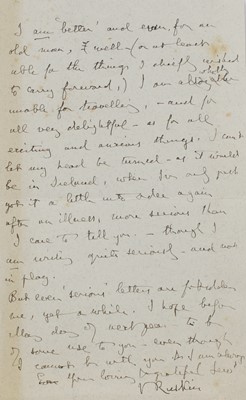 I am 'better' and even, for an
old man, well - (or at least
able for the things I chiefly wished
to carry forward,) I am altogether
unable for travelling, - and for
all very delightful - as for all
exciting and anxious things. I can't
let my head be turned - as it would
be in Ireland, when I've only just
got it a little into order again
after an illness, more serious than
I care to tell you. - though I
am writing quite seriously - and not
in play.
But even 'serious' letters are forbidden
me, yet a while. I hope before
May day of next year to be
of some use to you - even though
I cannot be with you So I am always
Your loving & grateful
Ruskin